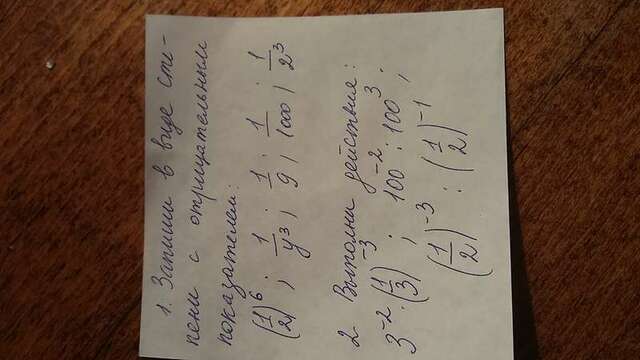 1. Запиши в виде сте-
пени с отрицательным
показателем:
(1/2)^6 ; 1/y^3 ; 1/9 ; 1/1000 ; 1/2^3
2. Выполни действия:
3^-2 · (1/3)^-3 ; 100^-2 : 100^3 ;
(1/2)^-3 : (1/2)^-1